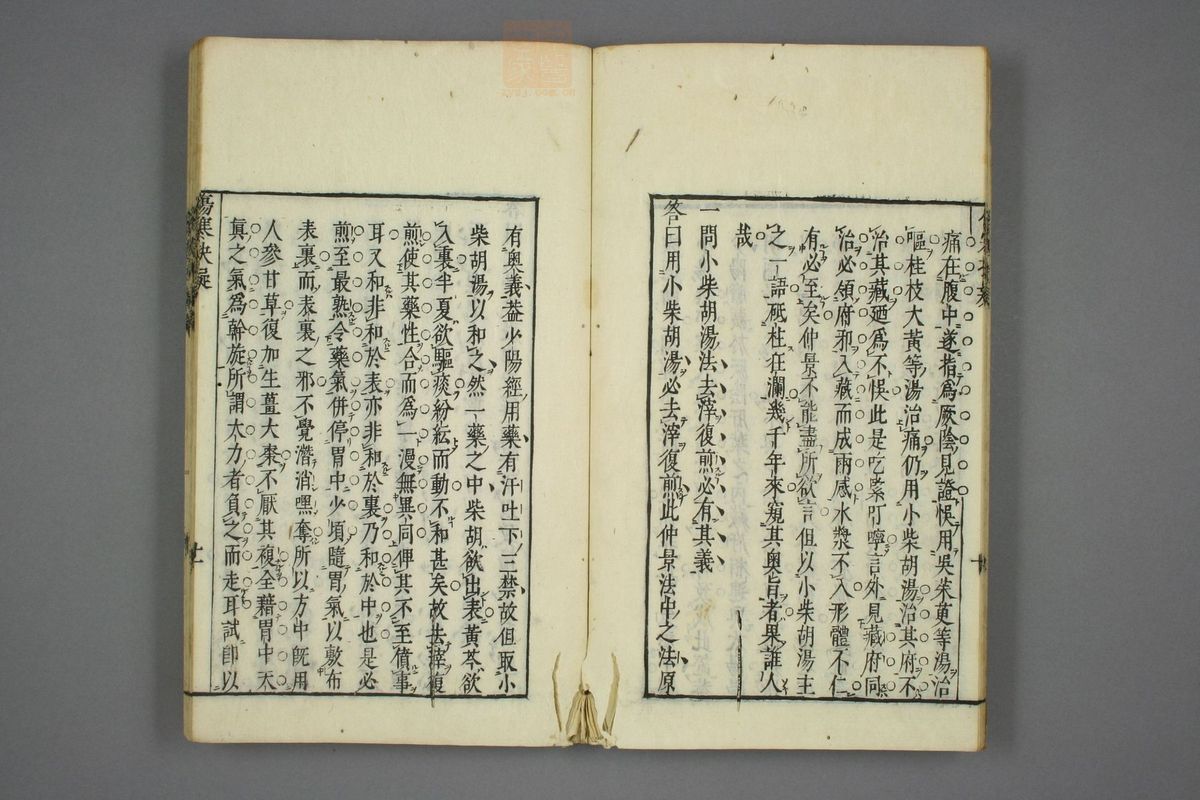 痛在腹中遂指爲厥陰見證悞用吳茱萸等湯治
嘔桂枝大黃等湯治痛仍用小柴胡湯治其府不
治其藏廼爲不悞此是吃緊叮嚀言外見藏府同
治必領府邪入藏而成兩感水漿不入形體不仁
有必至矣仲景不能盡所欲言但以小柴胡湯主
之一語砥柱狂瀾幾千年來窺其奧旨者果誰人
哉
一問小柴胡湯法去滓復煎必有其義
答曰用小柴胡湯必去滓復煎此仲景法中之法原
有奧義葢少陽經用藥有汗吐下三禁故但取小
柴胡湯以和之然一藥之中柴胡欲出表黃芩欲
入裏半夏欲驅痰紛紜而動不和甚矣故去滓復
煎使其藥性合而爲一漫無異同俾其不至僨事
耳又和非和於表亦非和於裏乃和於中也是必
煎至最熟令藥氣併停胃中少頃隨胃氣以敷布
表裏而表裏之邪不覺潛消嘿奪所以方中旣用
人參甘草復加生薑大棗不厭其複全藉胃中天
眞之氣爲斡旋所謂大力者負之而走耳試卽以
傷寒抉疑
十
十一